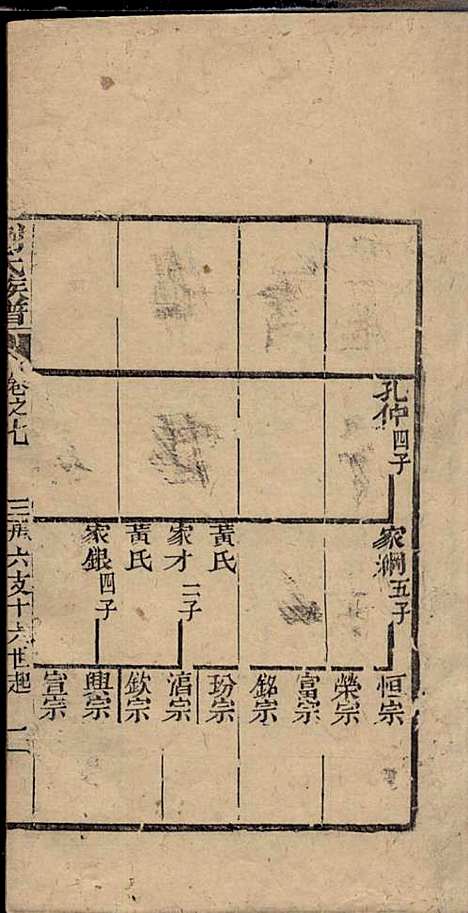 孔仲四子
家綱五子
黃氏
家才二子
黃氏
家銀四子
恒宗
榮宗
富宗
銘宗
玢宗
濇宗
欽宗
興宗
宣宗
氏族譜
卷之七
三 六支十六世起
二